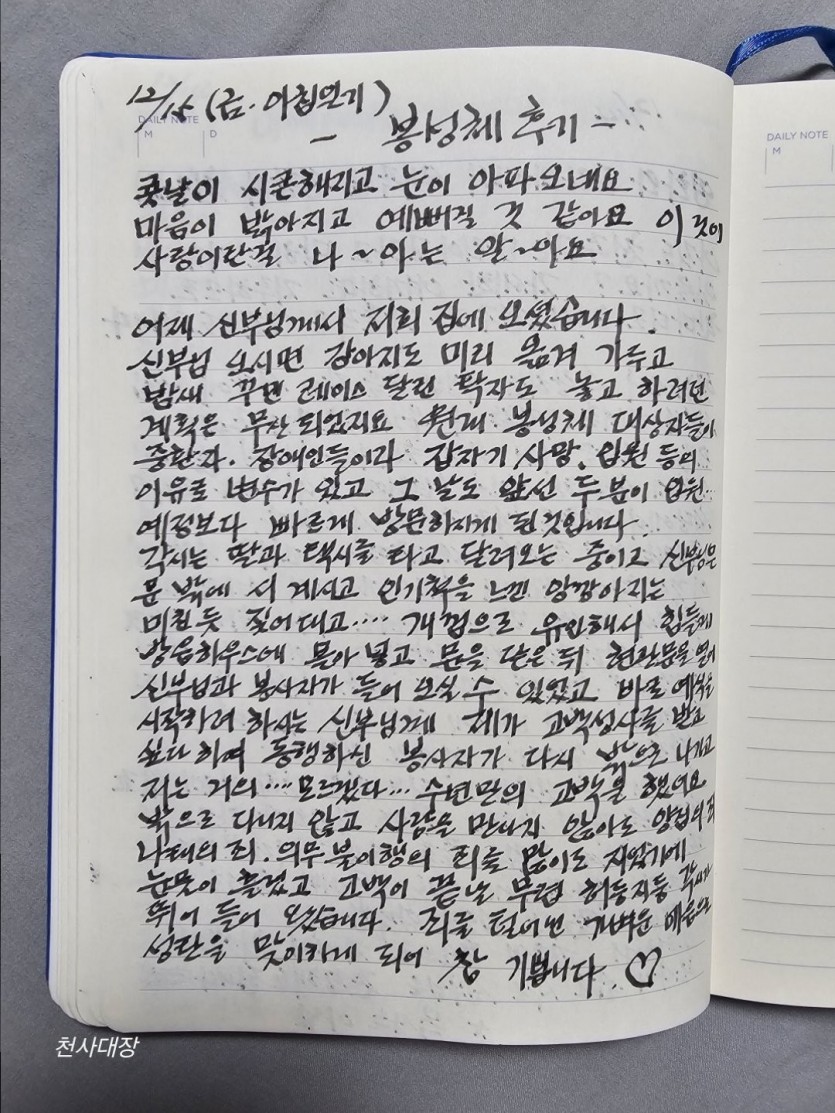 12/15 (금. 아침일기)
DAILY NOTE
M D
- 봉성체 후기 -
콧날이 시큰해지고 눈이 아파오네요
마음이 밝아지고 예뻐질 것 같아요 이것이
사랑이란걸 나~아는 알~아요
어제 신부님께서 저희 집에 오셨습니다.
신부님 오시면 강아지도 미리 옮겨 가두고
밤새 꾸민 레이스 달린 탁자도 놓고 하려던
계획은 무산 되었지요 원래 봉성체 대상자들이
중환자. 장애인들이라 갑자기 사망. 입원 등의
이유로 변수가 있고 그 날도 앞선 두 분이 입원
예정보다 빠르게 방문하시게 된것입니다.
각시는 딸과 택시를 타고 달려오는 중이고 신부님은
문 밖에 서 계시고 인기척을 느낀 강아지는
미친듯 짖어대고.... 개껌으로 유인해서 힘들게
방음하우스에 몰아 넣고 문을 닫은 뒤 현관문을 열어
신부님과 봉사자가 들어 오실 수 있었고 바로 예식을
시작하려 하시는 신부님께 제가 고백성사를 받고
싶다 하여 동행하신 봉사자가 다시 밖으로 나가고
저는 거의.... 모르겠다... 수년만의 고백을 했어요
밖으로 다니지 않고 사람을 만나지 않아도 양심의 죄
나태의 죄. 의무 불이행의 죄를 많이도 지었기에
눈물이 흘렀고 고백이 끝날 무렵 허둥지둥 각시가
뛰어 들어 왔습니다. 죄를 털어낸 가벼운 마음으로
성탄을 맞이하게 되어 참 기쁩니다. ♡
DAILY NOTE
M
천사대장